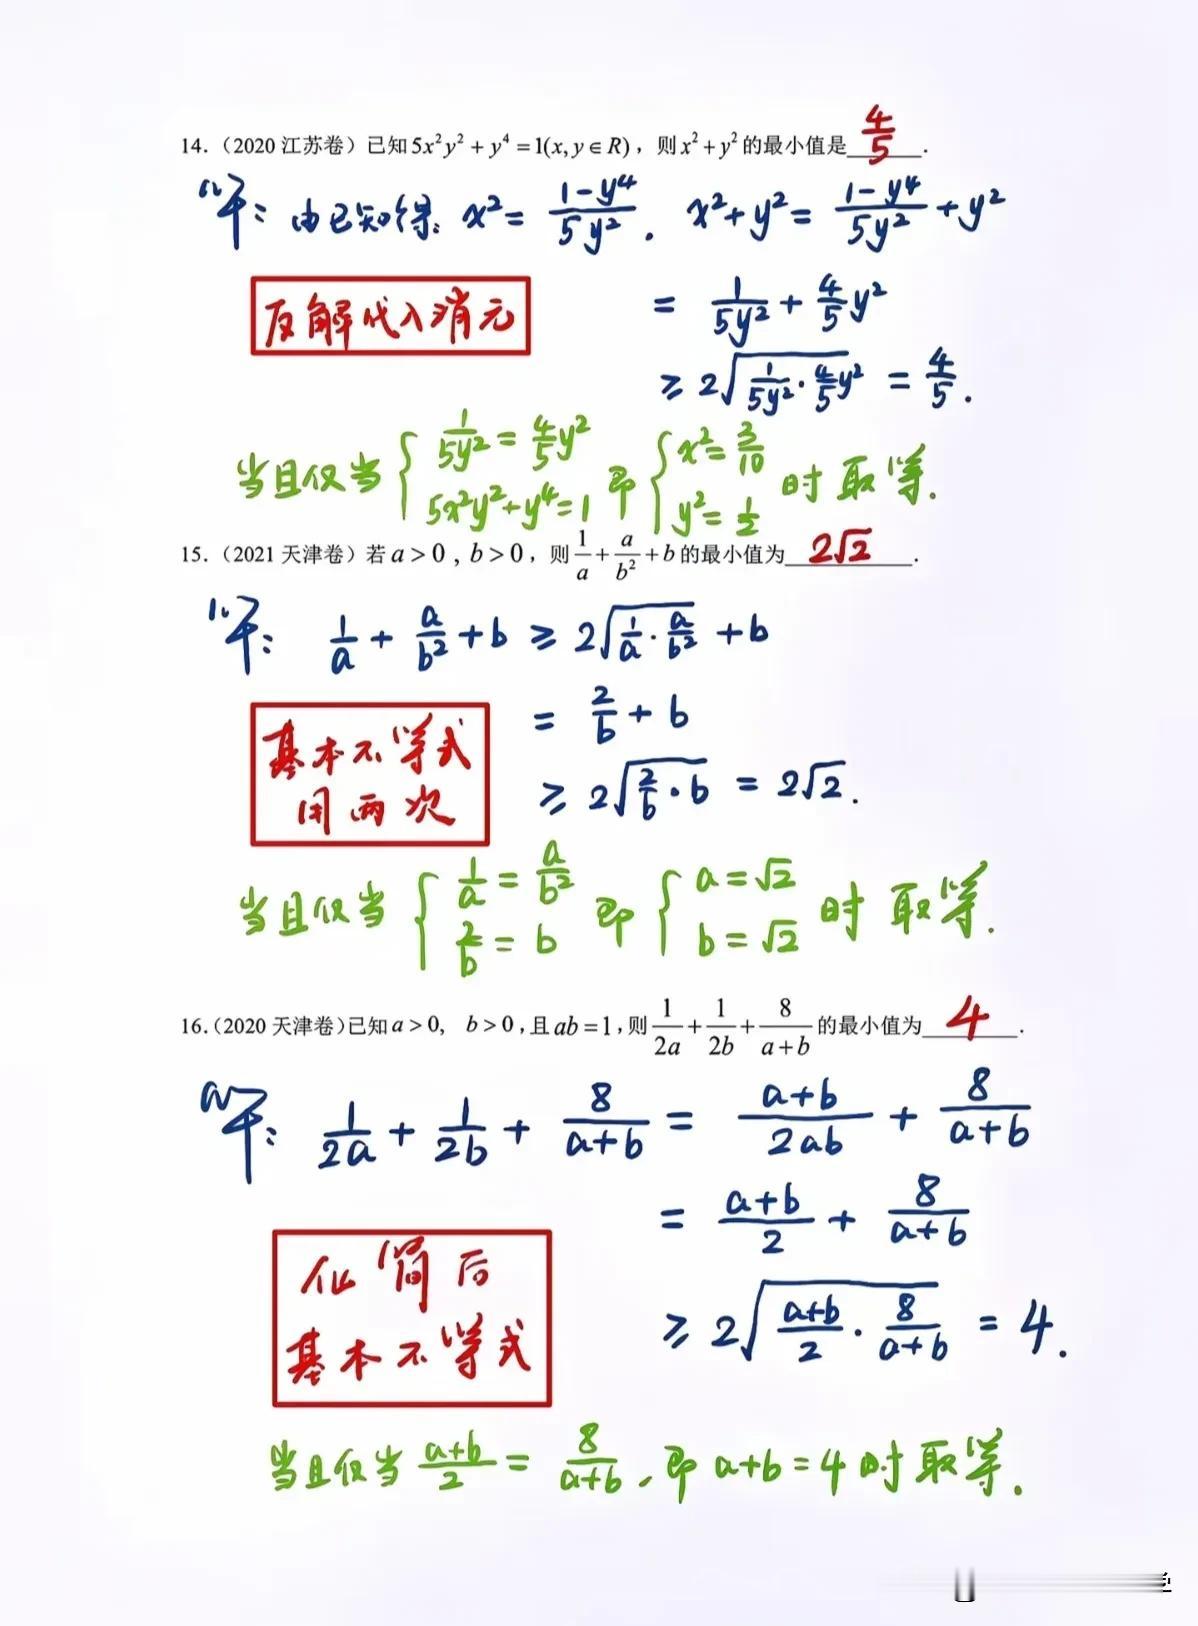 14.（2020 江苏卷）已知 5x²y² + y⁴ = 1(x, y ∈ R)，则 x² + y² 的最小值是 4/5 .
解: 由已知得: x² = (1-y⁴)/(5y²). x²+y² = (1-y⁴)/(5y²) + y²
反解代入消元
= 1/(5y²) + 4/5 y²
≥ 2√(1/(5y²) · 4/5 y²) = 4/5.
当且仅当 { 1/(5y²) = 4/5 y² 5x²y²+y⁴=1 即 { x²=3/10 y²=1/2 时取等.
15.（2021 天津卷）若 a > 0 , b > 0，则 1/a + a/b² + b 的最小值为 2√2 .
解: 1/a + a/b² + b ≥ 2√(1/a · a/b²) + b
基本不等式
用两次
= 2/b + b
≥ 2√(2/b · b) = 2√2.
当且仅当 { 1/a = a/b² 2/b = b 即 { a=√2 b=√2 时取等.
16.（2020 天津卷）已知 a > 0, b > 0，且 ab = 1，则 1/(2a) + 1/(2b) + 8/(a+b) 的最小值为 4 .
解: 1/(2a) + 1/(2b) + 8/(a+b) = (a+b)/(2ab) + 8/(a+b)
= (a+b)/2 + 8/(a+b)
化简后
基本不等式
≥ 2√((a+b)/2 · 8/(a+b)) = 4.
当且仅当 (a+b)/2 = 8/(a+b), 即 a+b=4 时取等.